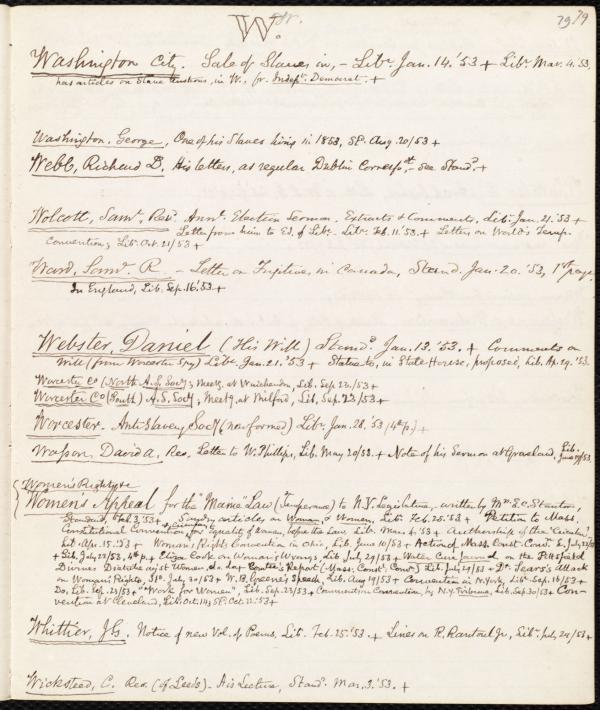 W. W. 79 79
Washington City. Sale of Slaves in, - Libr. Jan. 14.'53 + Libr. Mar. 4.'53,
has articles on Slave auctions, in W., fr. Indept. Democrat. +
Washington, George, One of his Slaves living in 1853, St. Aug. 20/53 +
Webb, Richard D. His letters, as regular Dublin Correspt. - see Stand. +
Wolcott, Saml. Rev. Annl. Election Sermon. Extracts & Comments, Lib. Jan. 21.'53 +
Letter from him to Ed. of Libr. Libr. Feb. 11.'53 + Letters on World's Temp.
Convention; Lib. Oct. 21/53 +
Ward, Saml. R. - Letter on Fugitives, in Canada, Stand. Jan. 20.'53, 1st page
In England, Lib. Sep. 16.'53 +
Webster, Daniel (His Will) Stand. Jan. 13.'53. + Comments on
Will (from Worcester Spy) Libr. Jan. 21.'53 + Statue to, in State House, proposed, Lib. Ap. 29.'53.
Worcester Co (North A.S. Socy; Meetg. at Winchendon, Lib. Sep. 23/53 +
Worcester Co (South) A.S. Socy; Meetg at Milford, Lib. Sep. 23/53 +
Worcester. Anti-Slavery Socy (new formed) Libr. Jan. 28.'53 (4th p.) +
Wasson, David A. Rev. Letter to W. Phillips, Lib. May 20/53. + Note of his Sermon at Groveland, Lib.
June 17/53.
Women's Rights, &c
Women's Appeal for the "Maine" Law (Temperance) to N.Y. Legislature, written by Mrs. E.C. Stanton,
Standard, Feb. 3,'53 + Sundry articles on Woman & Women, Lib. Feb. 25.'53 + Petition to Mass.
Constitutional Convention for equality of women, before the Law, Lib. Mar. 4.'53 +
Lib. Apr. 15.'53 + Woman's Rights Convention in Ohio, Lib. June 10/53 + Action of Mass. Const. Conv.
+ Lib. July 22/53, 4th p. + Eliza Cook on Woman's Wrongs, Lib. July 29/53 + on the Pittsfield
Divines Lib. July 29/53 + Dr. Sears's attack
on Woman's Rights, St. July 30/53 + W. B. Greene's Speech, Lib. Aug 19/53 + Convention in N. York, Libr. Sep. 16/53 +
Do, Lib. Sep. 23/53 + "Work for Women", Lib. Sep. 23/53 + Comments on Convention, by N.Y. Tribune, Lib. Sep 30/53 + Con-
vention at Cleveland, Lib. Oct. 14; St. Oct. 22/53 +
Whittier, J.G. Notice of new Vol. of Poems. Lib. Feb. 25.'53. + Lines on R. Rantoul Jr., Libr. July 29/53 +
Wicksteed, C. Rev. (of Leeds) - His Lecture, Stand. Mar. 3.'53. +